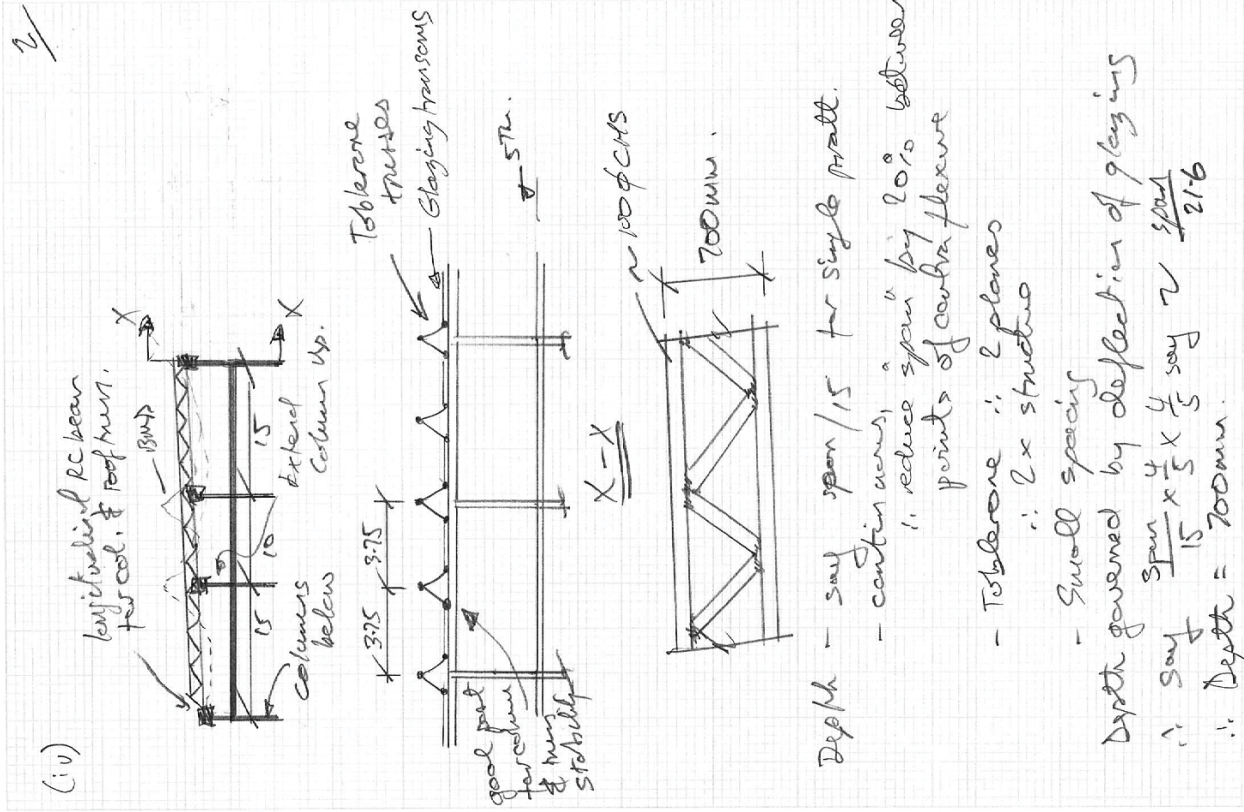 2/
(iv)
longitudinal RC beam
for col. & roof truss.
BMD
X
X
15
10
15
columns
below
Extend
column up.
Toblerone
trusses
Glazing transoms
3.75
3.75
good for
for column
& truss
stability
5th.
X-X
~100ϕCHS
700mm.
Depth - say span/15 for single pratt.
- continuous,
∴ reduce "span" by 20% between
points of contraflexure
- Toblerone ∴ 2 planes
∴ 2x structure
- Small spacing
Depth governed by deflection of glazing
∴ Say span/15 x 4/5 x 4/5 say ~ span/21.6
∴ Depth = 700mm.